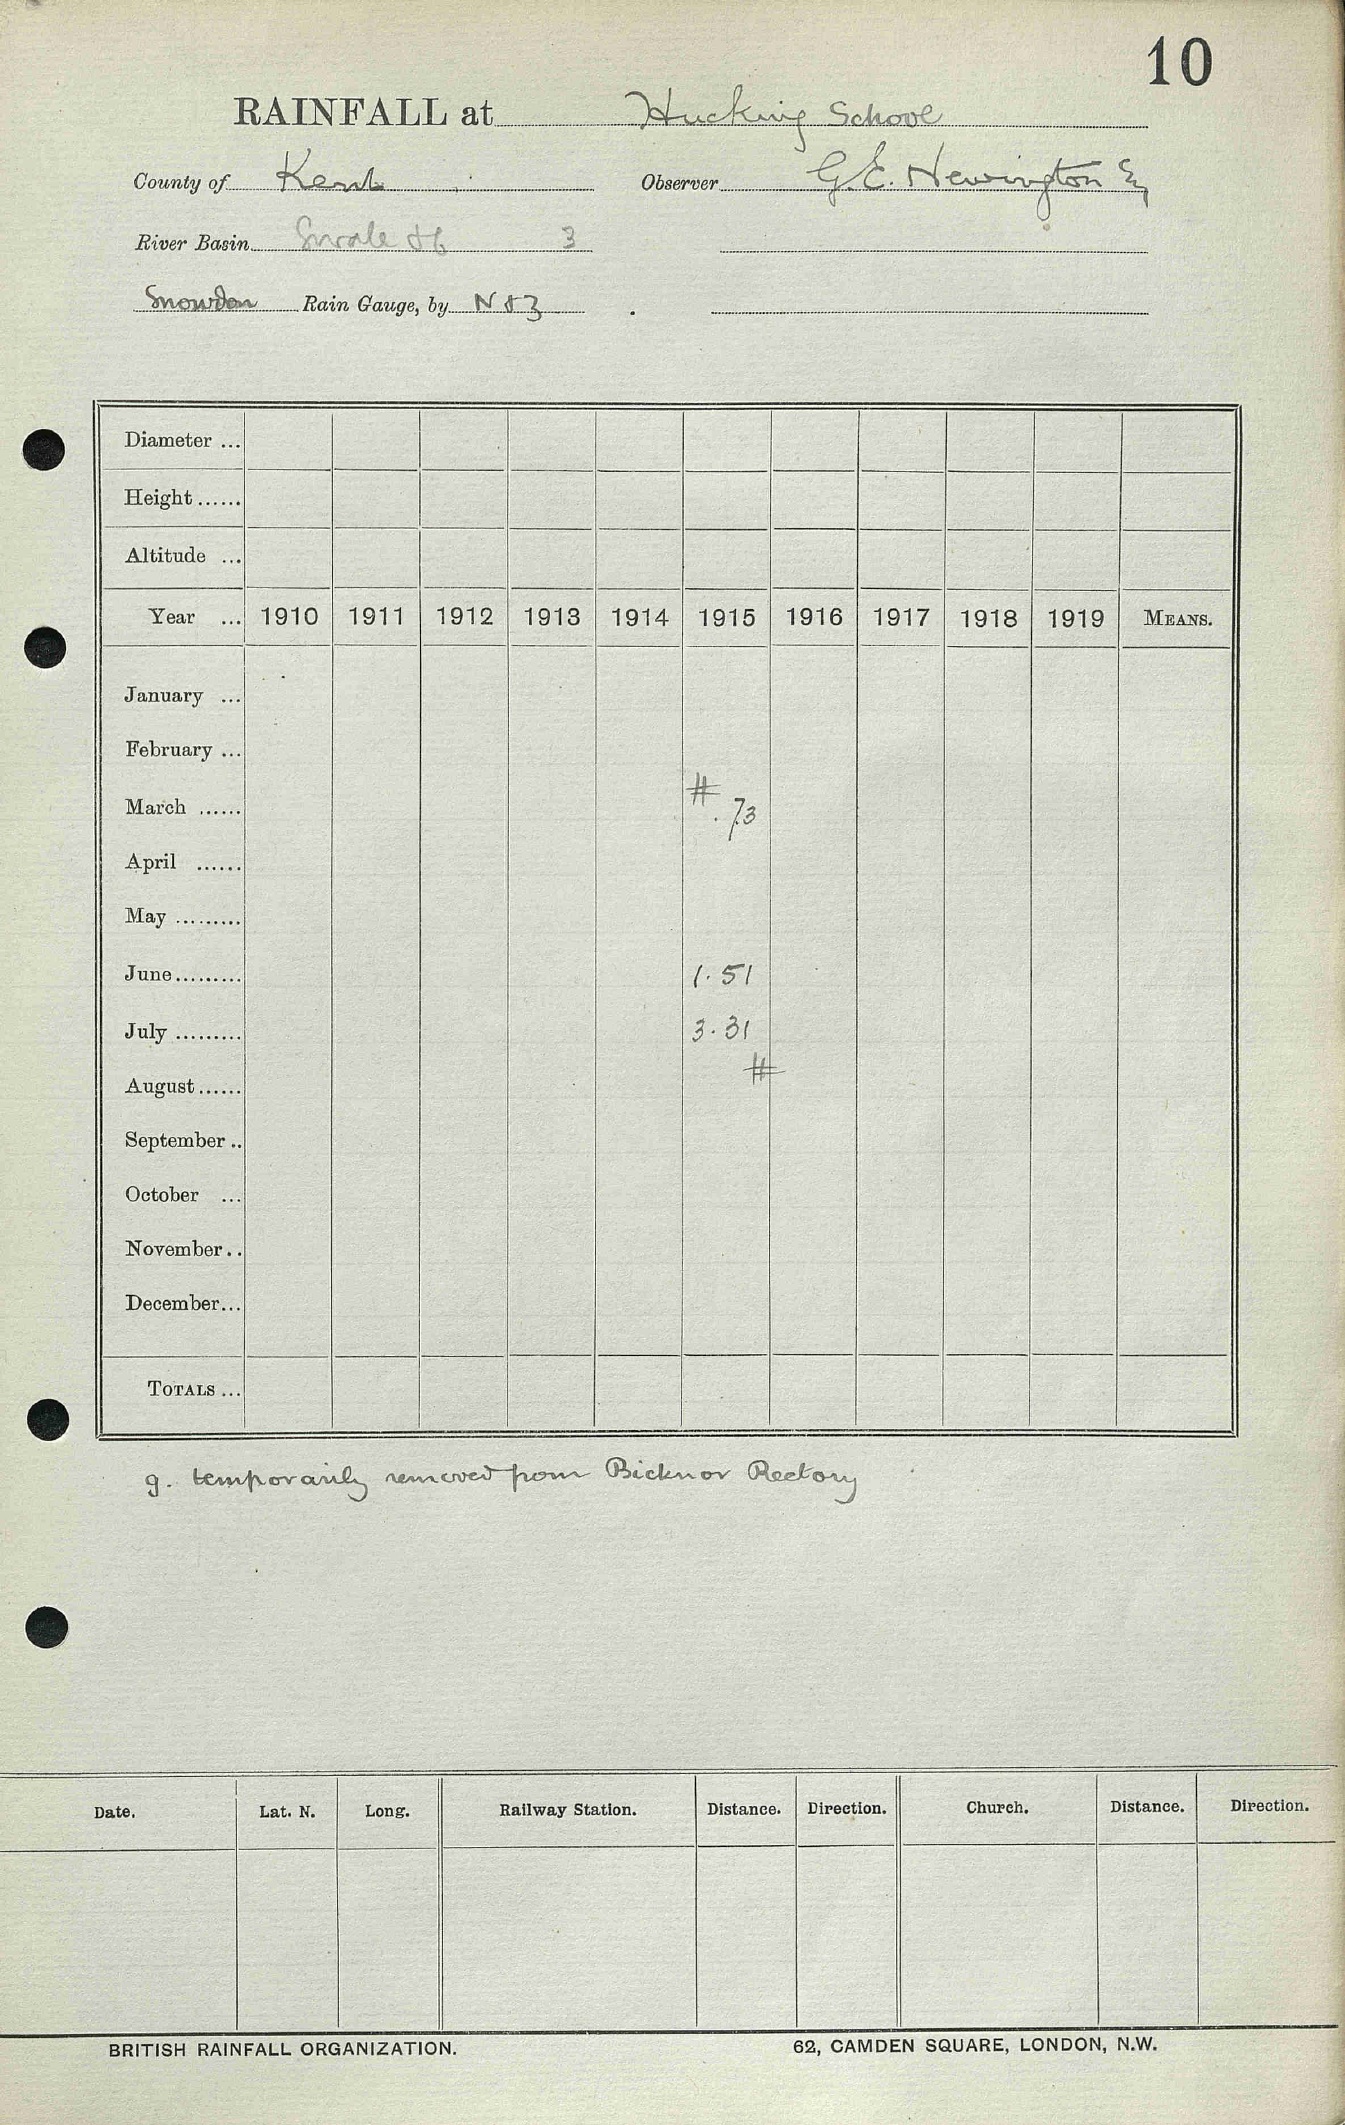 10
RAINFALL at Hucking School
County of Kent Observer G. E. Newington Esq
River Basin Swale &c 3
Snowdon Rain Gauge, by N & Z
Diameter ...
Height ......
Altitude ...
Year ... 1910 1911 1912 1913 1914 1915 1916 1917 1918 1919 MEANS.
January ...
February ...
#
March ...... .73
April ......
May .........
June......... 1.51
July ......... 3.31
#
August......
September ..
October ...
November ..
December...
TOTALS ...
g. temporarily removed from Bicknor Rectory
Date. Lat. N. Long. Railway Station. Distance. Direction. Church. Distance. Direction.
BRITISH RAINFALL ORGANIZATION. 62, CAMDEN SQUARE, LONDON, N.W.